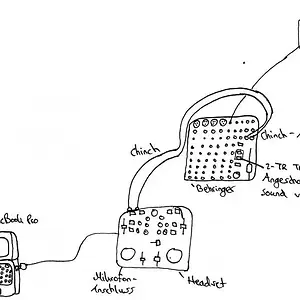 Chinch-
chinch
2-TR
Behringer
sound
Pro
Mikrofon-
Anschluss
Headset